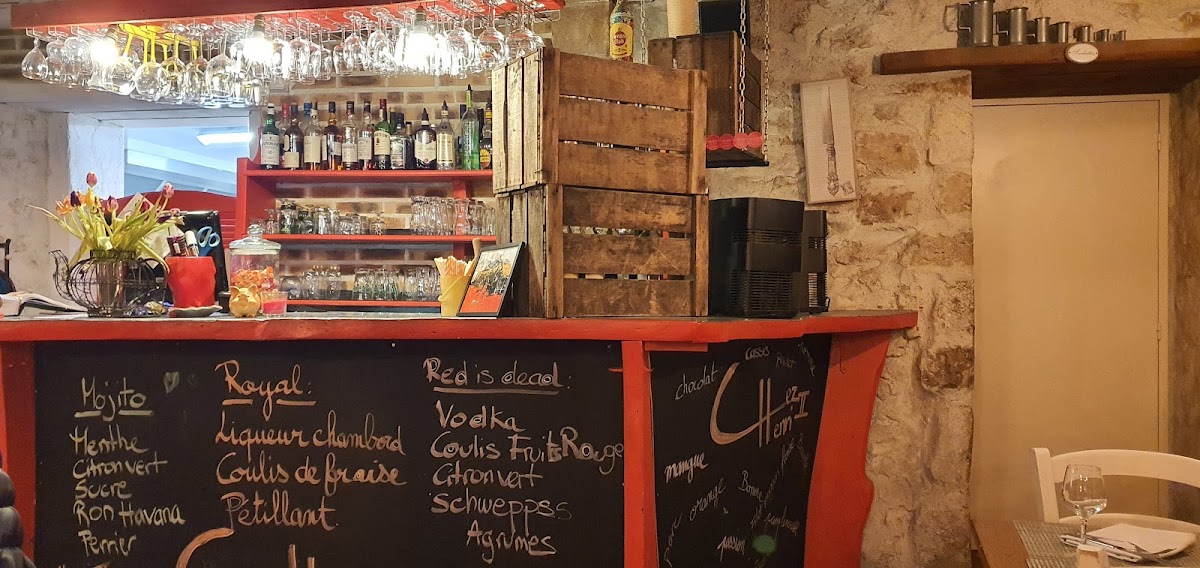 Mojito
Menthe
Citron vert
Sucre
Ron Havana
Perrier
Royal:
Liqueur chambord
Coulis de fraise
Pétillant
Red is dead:
Vodka
Coulis Fruits Rouge
Citron vert
Schweppss
Agrumes
cassis
chocolat
CHez
Henri II
mangue
orange
passion